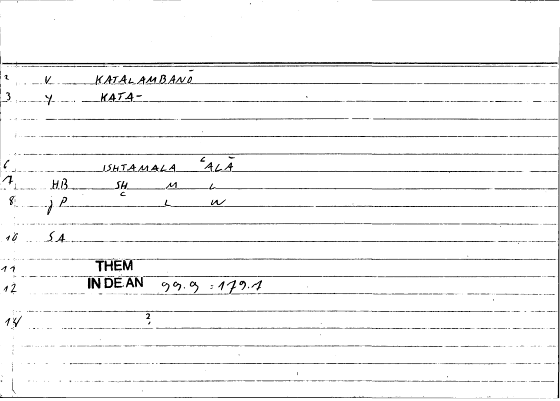 2 V KATALAMBANŌ
3 Y KATA-
6 ISHTAMALA ʿALĀ
7 HB SH M L
8 jP ʿ L W
10 SA
11 THEM
12 IN DE AN 99.9 : 179.1
14 ?